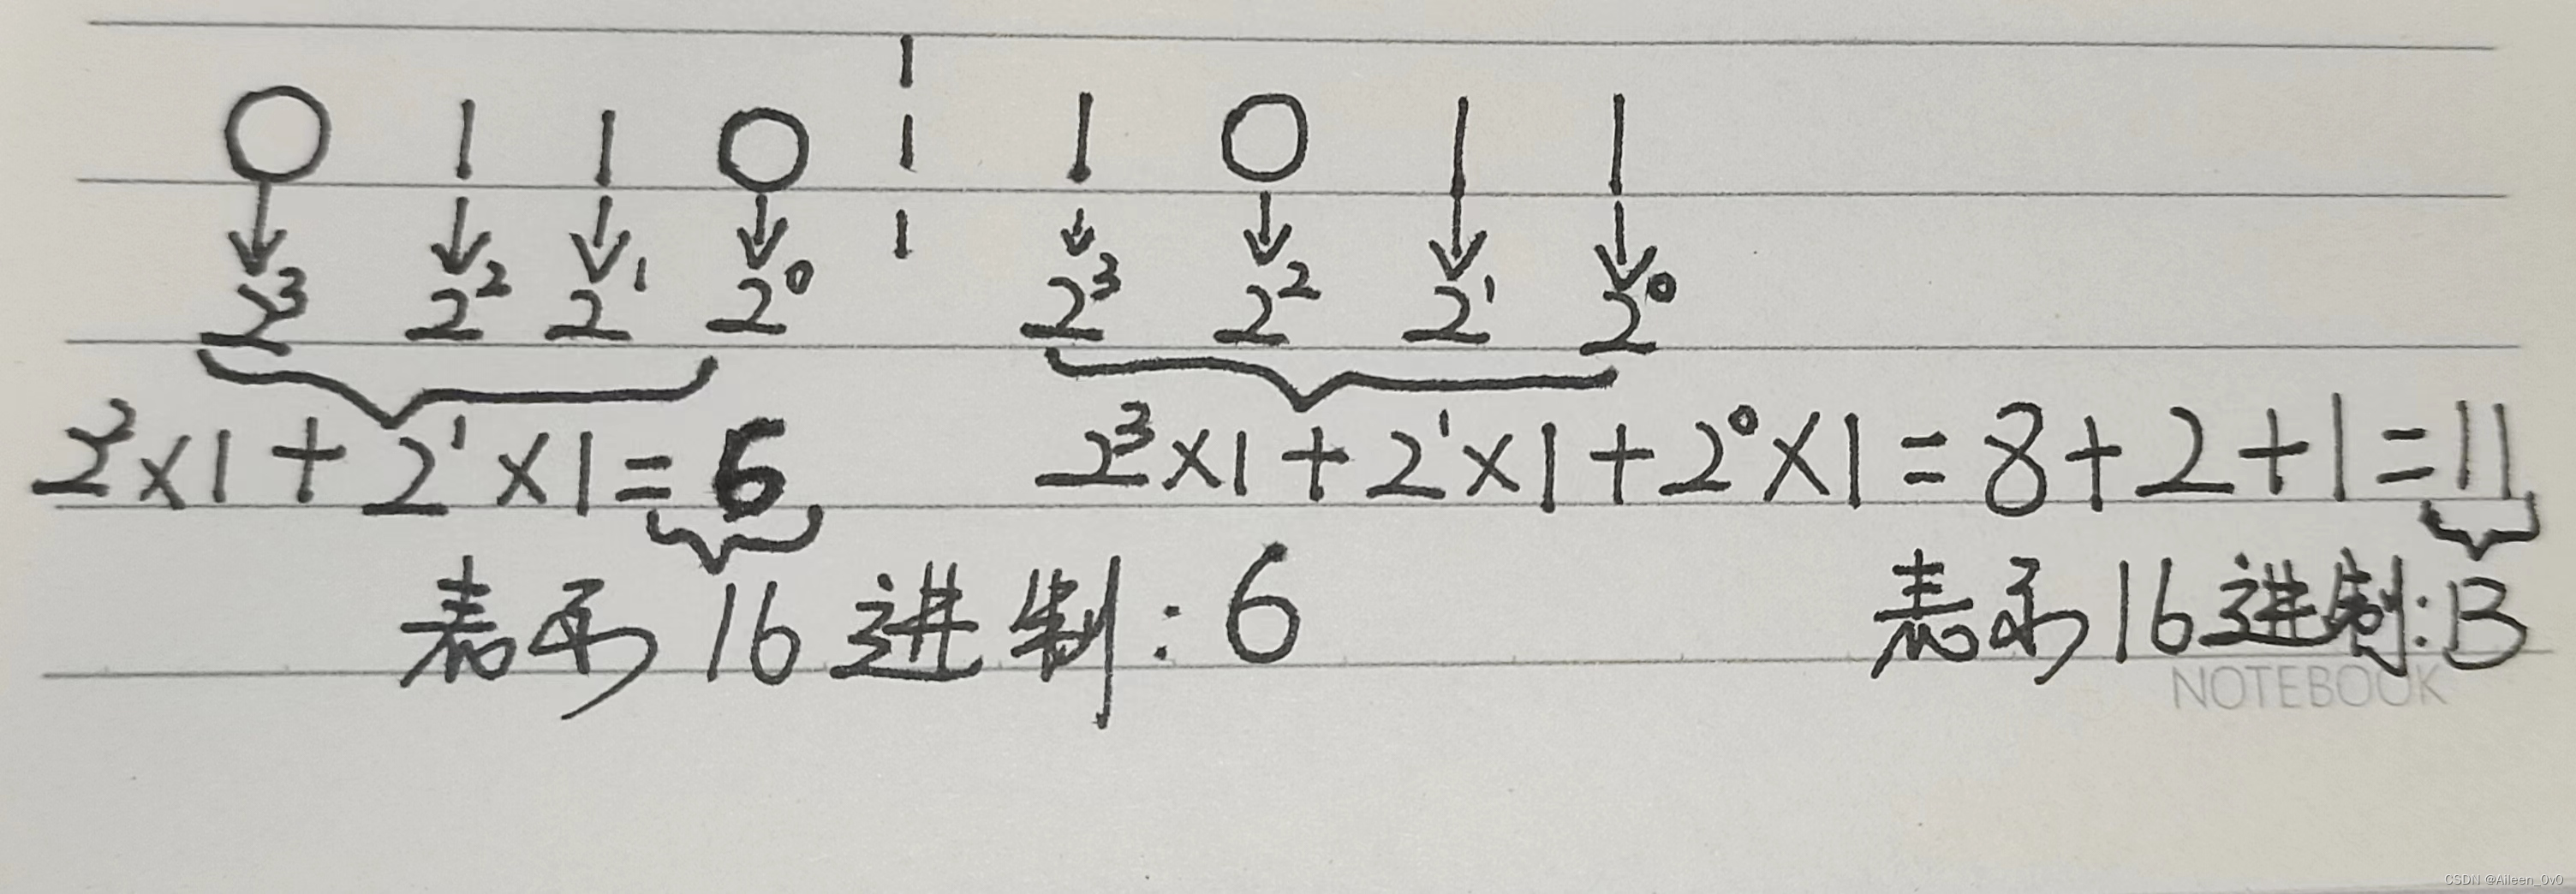 0 1 1 0 ¦ 1 0 1 1
2³ 2² 2¹ 2⁰ 2³ 2² 2¹ 2⁰
2²×1+2¹×1=6 2³×1+2¹×1+2⁰×1=8+2+1=11
表示16进制:6 表示16进制:B
NOTEBOOK
CSDN @Aileen_0v0